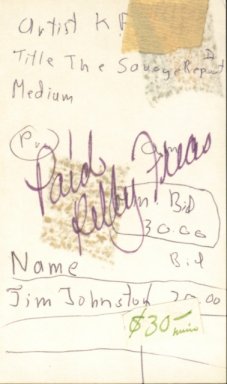 Artist K F
Title The Savage Report
Medium
Paid
Kelly Freas
Min Bid
30.00
Name Bid
Jim Johnston 30.00
$30—